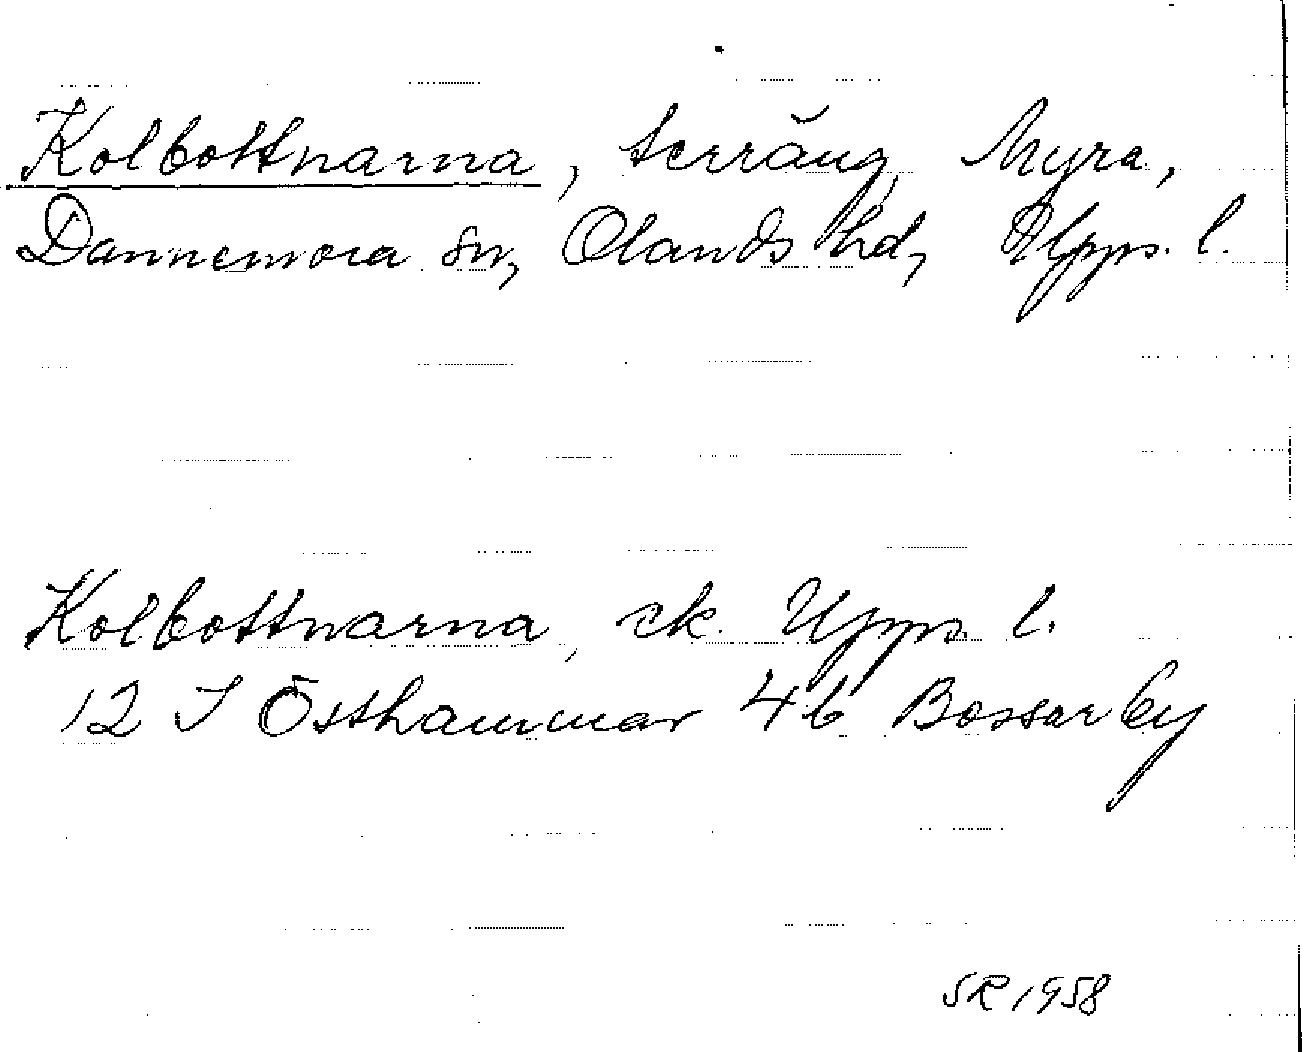 Kolbottnarna, terräng, Myra,
Dannemora sn, Olands hd, Upps. l.
Kolbottnarna, ek. Upps. l.
12 I Östhammar 4b Bossarby
SR 1958